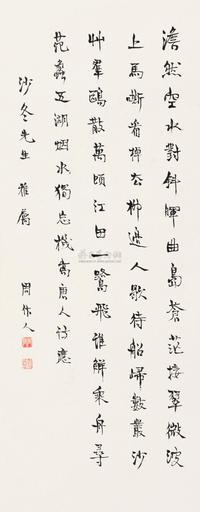 澹然空水對斜暉曲島蒼茫接翠微波
上馬嘶看棹去柳邊人歇待船歸數叢沙
艸羣鷗散萬頃江田一鷺飛誰解乘舟尋
范蠡五湖烟水獨忘機 寫唐人詩應
沙冬先生 雅屬
周作人